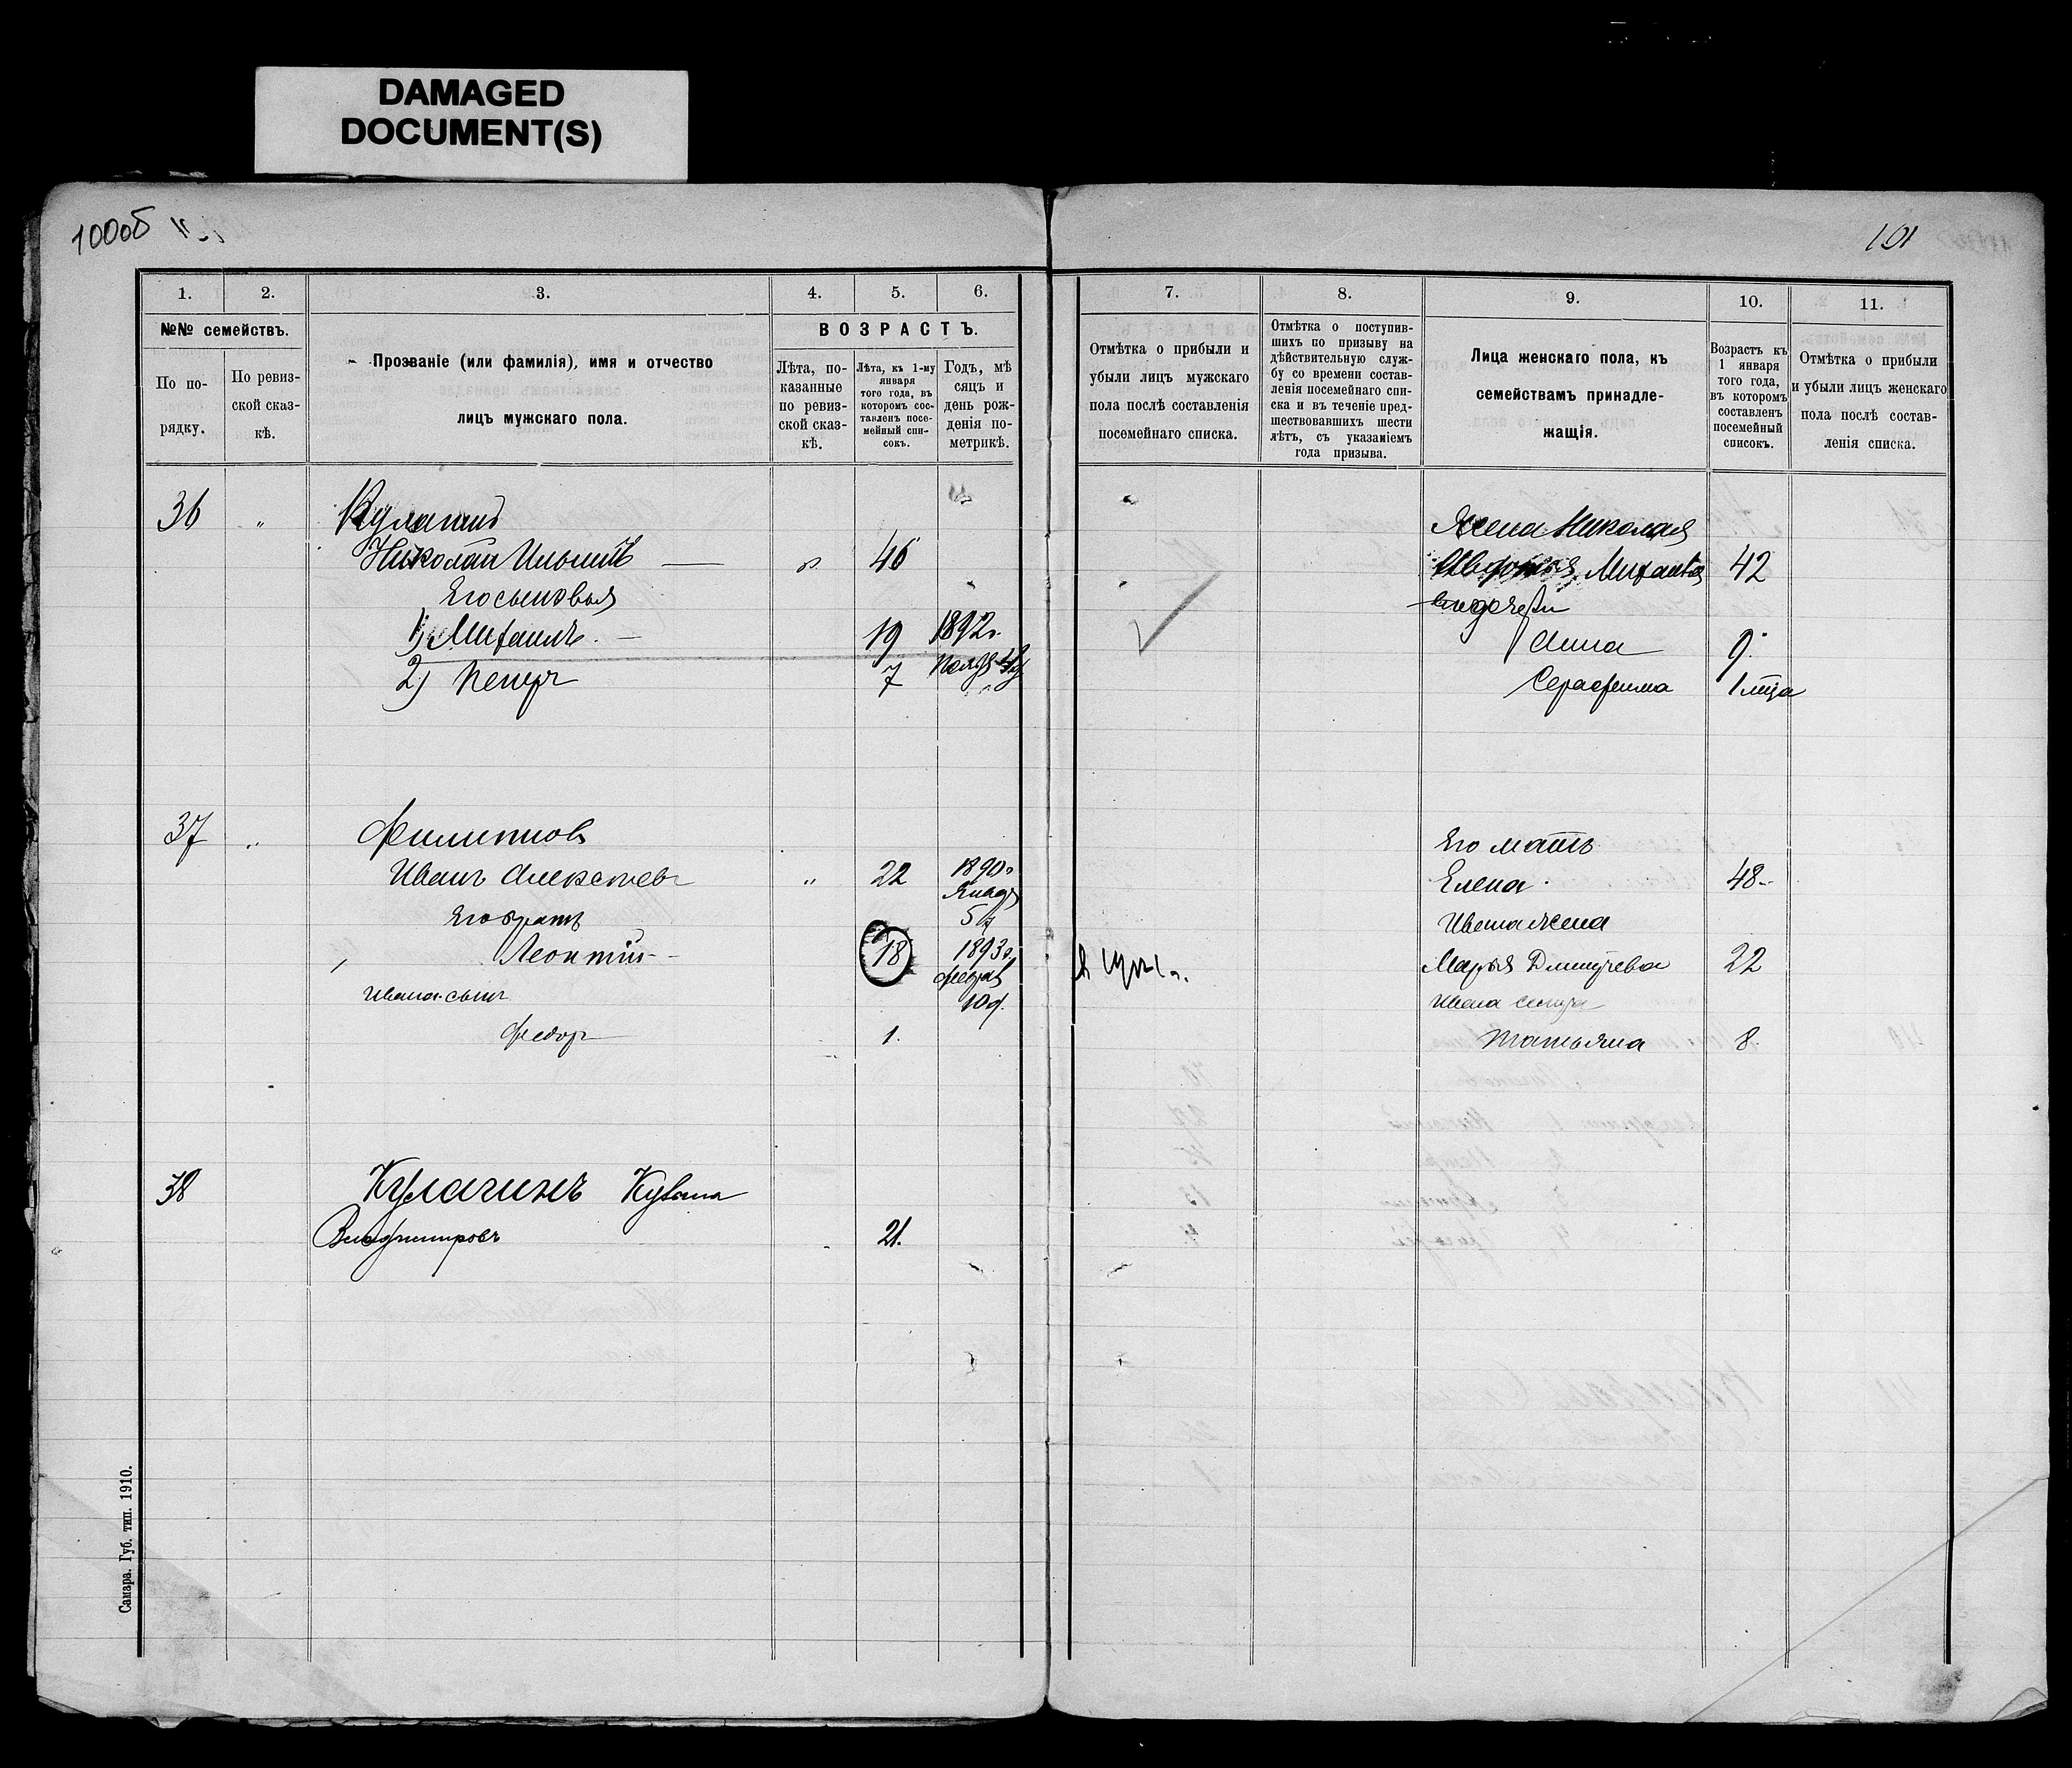 DAMAGED
DOCUMENT(S)
100об
101
1.
2.
3.
4.
5.
6.
№№ семействъ.
По по-
рядку.
По ревиз-
ской сказ-
кѣ.
Прозваніе (или фамилія), имя и отчество
лицъ мужскаго пола.
ВОЗРАСТЪ.
Лѣта, по-
казанные
по ревиз-
ской сказ-
кѣ.
Лѣта, къ 1-му
января
того года, въ
которомъ сос-
тавленъ посе-
мейный спи-
сокъ.
Годъ, мѣ
сяцъ и
день рож-
денія по-
метрикѣ.
7.
8.
9.
10.
11.
Отмѣтка о прибыли и
убыли лицъ мужскаго
пола послѣ составленія
посемейнаго списка.
Отмѣтка о поступив-
шихъ по призыву на
дѣйствительную служ-
бу со времени состав-
ленія посемейнаго спи-
ска и въ теченіе пред-
шествовавшихъ шести
лѣтъ, съ указаніемъ
года призыва.
Лица женскаго пола, къ
семействамъ принадле-
жащія.
Возрастъ къ
1 января
того года,
въ которомъ
составленъ
посемейный
списокъ.
Отмѣтка о прибыли
и убыли лицъ женскаго
пола послѣ состав-
ленія списка.
36 " Кулагинъ
Николай Ильинъ — " 46
Его сыновья
1) Михаилъ — 19 1892г.
2) Петръ 7
Жена Николая
Михайлова 42
Анна 9
Серафима 1 мѣца
37 " Филиппов
Иванъ Алексѣевъ " 22 1890г
Январ
5 д
Его братъ
Леонтій - 18 1893г.
Феврал
10 д.
Ивана сынъ
Федоръ 1.
Его мать
Елена 48
Ивана жена
Марья Дмитрева 22
Ивана сестра
Татьяна 8
38 Кулагинъ Кузьма
Владимировъ 21.
Самара. Губ. тип. 1910.